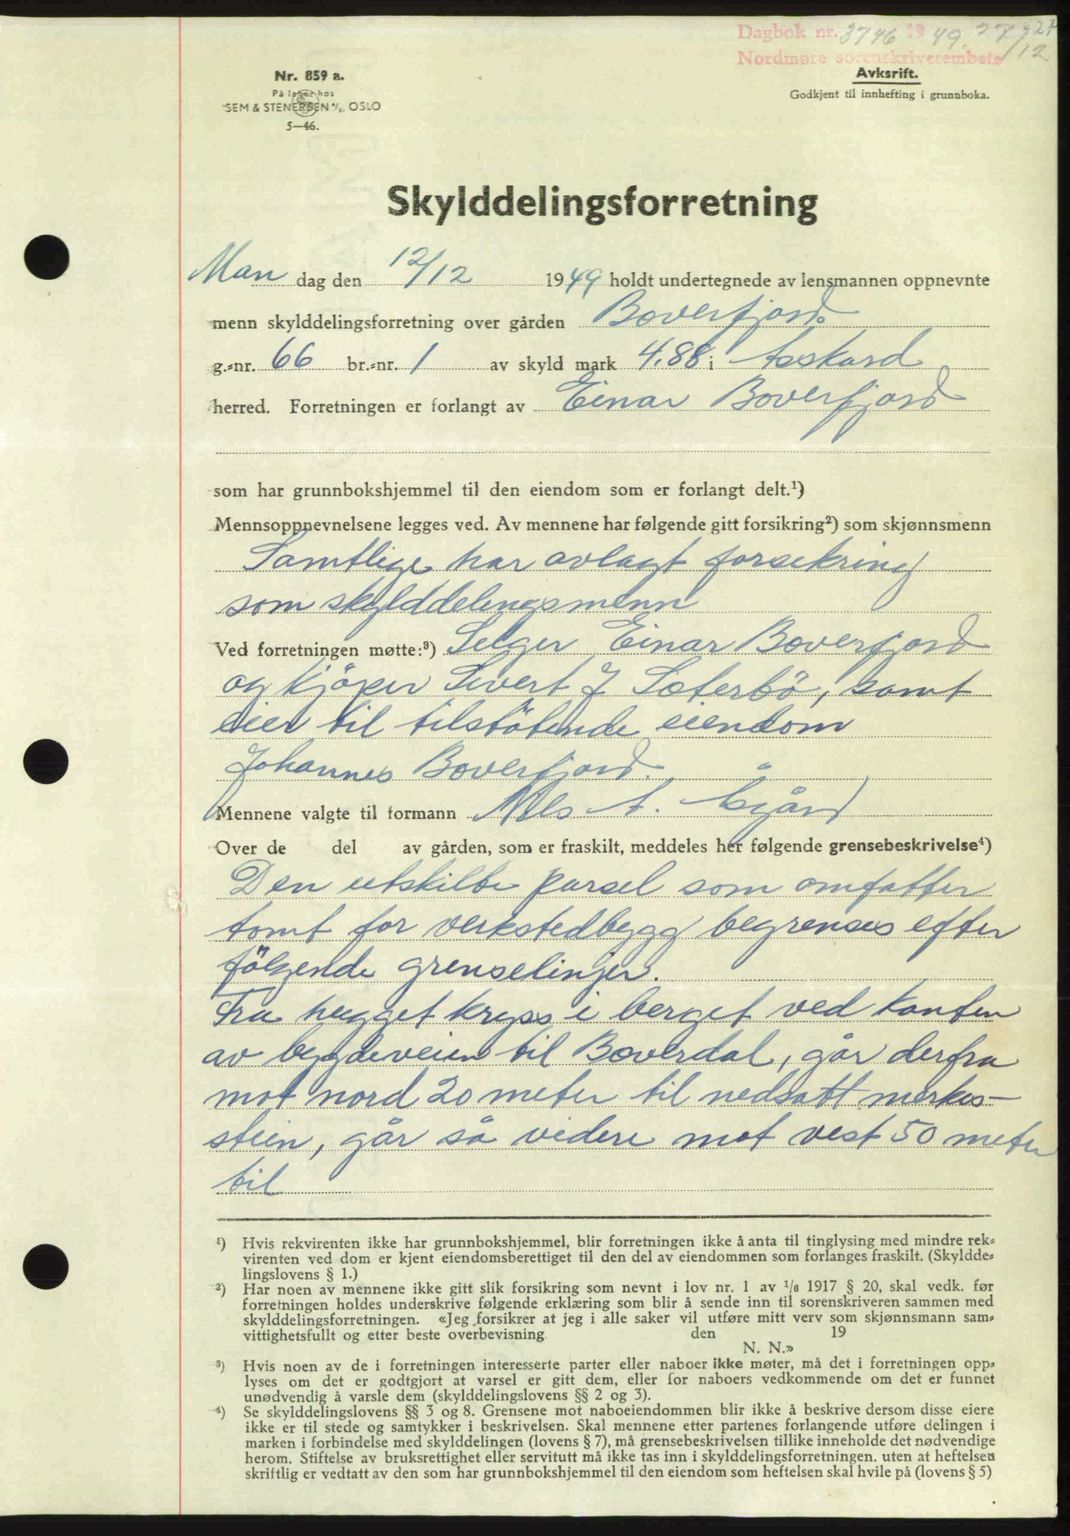 Dagbok nr. 3746 1949. 27/12
Nordmøre sorenskriverembete
Nr. 859 a.
På lager hos
SEM & STENERSEN A/S, OSLO
5—46.
Avksrift.
Godkjent til innhefting i grunnboka.
Skylddelingsforretning
Man dag den 12/12 1949 holdt undertegnede av lensmannen oppnevnte
menn skylddelingsforretning over gården Boverfjord.
g.-nr. 66 br.-nr. 1 av skyld mark 4.88 i Asskard
herred. Forretningen er forlangt av Einar Boverfjord
som har grunnbokshjemmel til den eiendom som er forlangt delt.¹)
Mennsoppnevnelsene legges ved. Av mennene har følgende gitt forsikring²) som skjønnsmenn
Samtlige har avlagt forsikring
som skylddelingsmenn
Ved forretningen møtte:³) Selger Einar Boverfjord
og kjöper Sivert J Sæterbö, samt
eier til tilstötende eiendom
Johannes Boverfjord.
Mennene valgte til formann Nils A.
Over de del av gården, som er fraskilt, meddeles her følgende grensebeskrivelse⁴)
Den utskilte parsel som omfatter
tomt for verkstedbygg begrenses efter
fölgende grenselinjer.
Fra hugget kryss i berget ved kanten
av bygdeveien til Bœverdal, går derfra
mot nord 20 meter til nedsatt merkes-
stein, går så videre mot vest 50 meter
til
¹) Hvis rekvirenten ikke har grunnbokshjemmel, blir forretningen ikke å anta til tinglysing med mindre rek-
virenten ved dom er kjent eiendomsberettiget til den del av eiendommen som forlanges fraskilt. (Skyldde-
lingslovens § 1.)
²) Har noen av mennene ikke gitt slik forsikring som nevnt i lov nr. 1 av 1/6 1917 § 20, skal vedk. før
forretningen holdes underskrive følgende erklæring som blir å sende inn til sorenskriveren sammen med
skylddelingsforretningen. «Jeg forsikrer at jeg i alle saker vil utføre mitt verv som skjønnsmann sam-
vittighetsfullt og etter beste overbevisning den 19
N. N.»
³) Hvis noen av de i forretningen interesserte parter eller naboer ikke møter, må det i forretningen opp-
lyses om det er godtgjort at varsel er gitt dem, eller for naboers vedkommende om det er funnet
unødvendig å varsle dem (skylddelingslovens §§ 2 og 3).
⁴) Se skylddelingslovens §§ 3 og 8. Grensene mot naboeiendommen blir ikke å beskrive dersom disse eiere
ikke er til stede og samtykker i beskrivelsen. Skal mennene etter partenes forlangende utføre delingen i
marken i forbindelse med skylddelingen (lovens § 7), må grensebeskrivelsen tillike inneholde det nødvendige
herom. Stiftelse av bruksrettighet eller servitutt må ikke tas inn i skylddelingsforretningen. uten at heftelsen
skriftlig er vedtatt av den som har grunnbokshjemmel til den eiendom som heftelsen skal hvile på (lovens § 5)